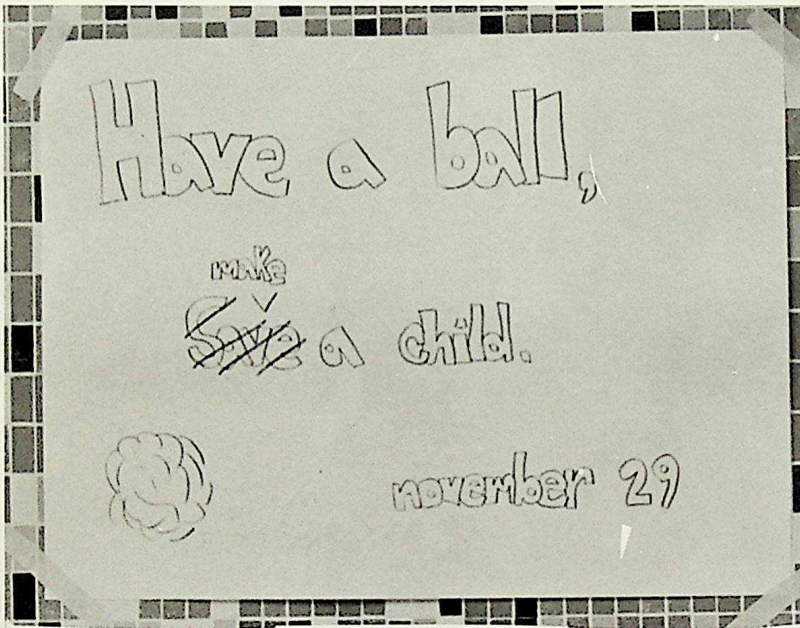 Have a ball,
make
Save a child.
november 29